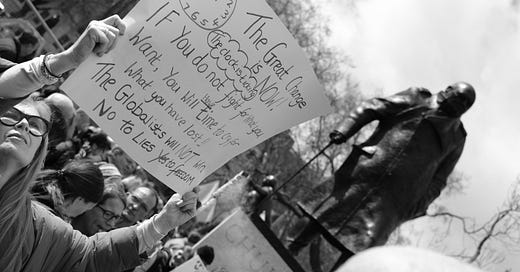 The Great Change
is NOW!
The clock is ticking
IF You do not fight for what you
Want You will have time to cry for
What you have lost!!
The Globalists will NOT win
NO TO LIES YES TO FREEDOM